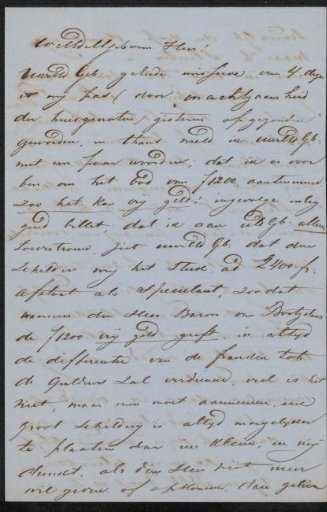 WelEdelGeboren Heer!
UwEdGeb geëerde missive van 4 dezer
is mij pas (door onachtzaamheid
der huisgenooten) gisteren
geworden, in thans meld ik UwEdGb.
met een paar woorden, dat ik er voor
ben om het bod van ƒ1200 aantenemen
zoo het kan vrij geld ingevolge inleg
biljet, dat ik aan UEdGb. alleen
toevertrouw. Ziet UwEdGb. dat de
schilder mij het stuk ad 2400 fr.
afstaat als speculant, zoodat
wanneer den Heer Baron van
de ƒ1200 vrij geld geeft, ik altijd
de differentie van de franken tot
de guldens zal verdienen, veel is het
niet, maar om niet aannemen, een
groot schilderij is altijd moeyelijker
te plaatsen dan een kleine, en mij
dunkt, als dien Heer niet meer
wil geven of opkomen, dan geven